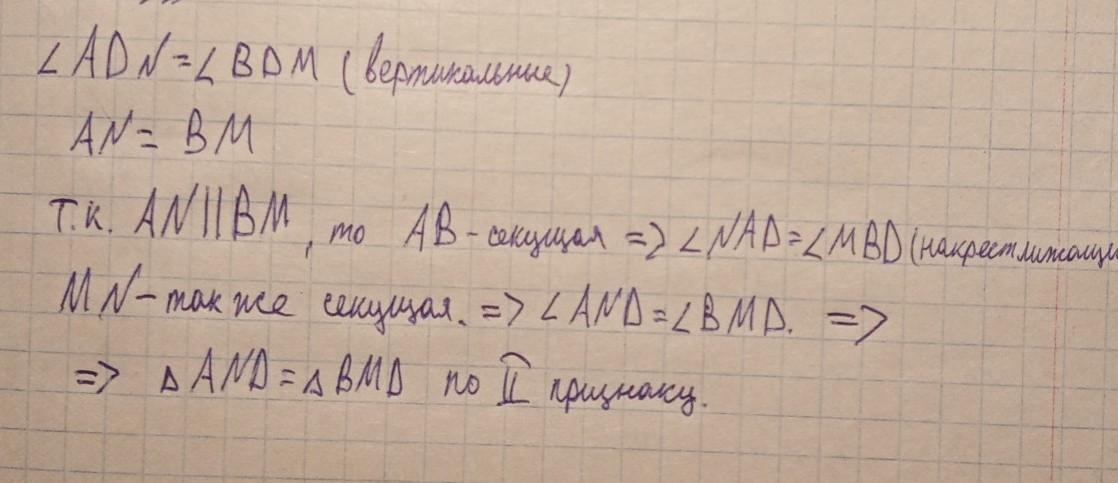 ∠ADN=∠BDM (вертикальные)
AN= BM
т.к. AN||BM, то AB-секущая => ∠NAD=∠MBD(накрестлижащи
MN-также секущая. => ∠AND=∠BMD. =>
=> △AND=△BMD по II признаку.